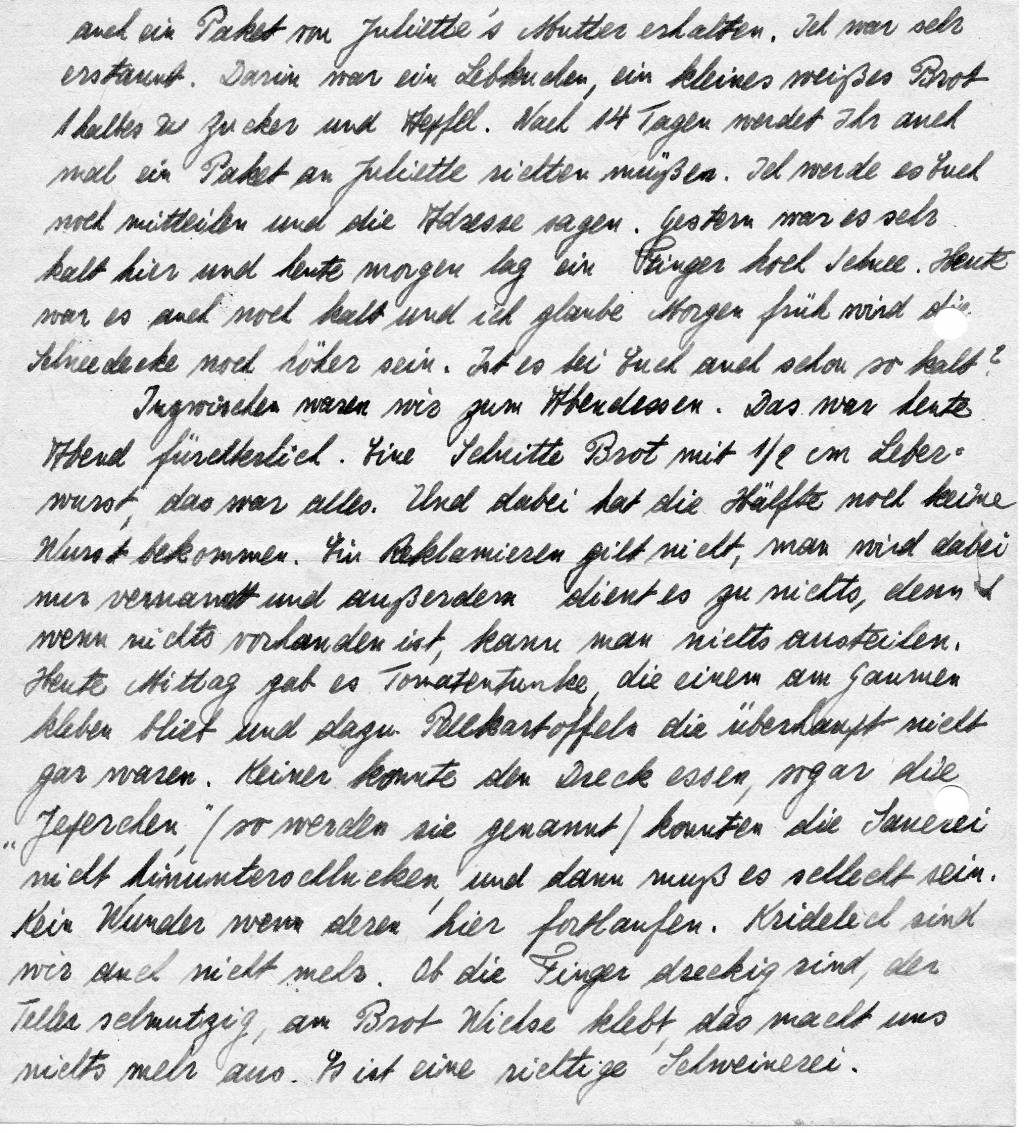 auch ein Paket von Juliette's Mutter erhalten. Ich war sehr
erstaunt. Darin war ein Lebkuchen, ein kleines weißes Brot
1 halbes ℔ Zucker und Äpfel. Nach 14 Tagen werdet Ihr auch
mal ein Paket an Juliette richten müßen. Ich werde es Euch
noch mitteilen und die Adresse sagen. Gestern war es sehr
kalt hier und heute morgen lag ein Finger hoch Schnee. Heute
war es auch noch kalt und ich glaube Morgen früh wird die
Schneedecke noch höher sein. Ist es bei Euch auch schon so kalt?
Inzwischen waren wir zum Abendessen. Das war heute
Abend fürchterlich. Eine Schnitte Brot mit 1/2 cm Leber-
wurst, das war alles. Und dabei hat die Hälfte noch keine
Wurst bekommen. Ein Reklamieren gilt nicht, man wird dabei
nur vernannt und außerdem dient es zu nichts, denn
wenn nichts vorhanden ist, kann man nichts austeilen.
Heute Mittag gab es Tomatentunke, die einem am Gaumen
kleben blieb und dazu Pellkartoffeln die überhaupt nicht
gar waren. Keiner konnte den Dreck essen, sogar die
„Jeferchen" (so werden sie genannt) konnten die Sauerei
nicht hinunterschlucken, und dann muß es schlecht sein.
Kein Wunder wenn deren hier fortlaufen. Kridelech sind
wir auch nicht mehr. Ob die Finger dreckig sind, der
Teller schmutzig, am Brot Wichse klebt, das macht uns
nichts mehr aus. Es ist eine richtige Schweinerei.